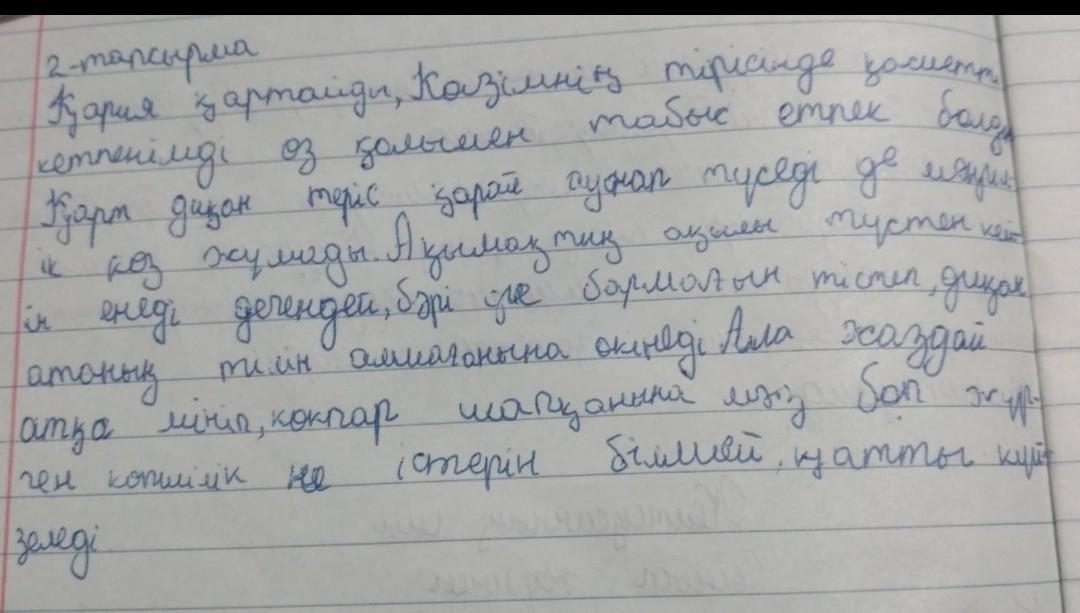 2-тапсырма
Қария қартайды, Көзімнің тірісінде қаметт
кетпенімді өз қолыммен табыс етпек болды
Қарт диқан теріс қарай аунап түседі де мәңгіл-
ік көз жұмады. Ақымақтың ақылы түстен кей-
ін енеді дегендей, бәрі де бармағын тістеп, диқан
атаның тілін алмағанына өкінеді Ала жаздай
атқа мініп, көкпар шапқанына мәз боп жүр-
ген көпшілік не істерін білмей, қатты күй-
зеледі